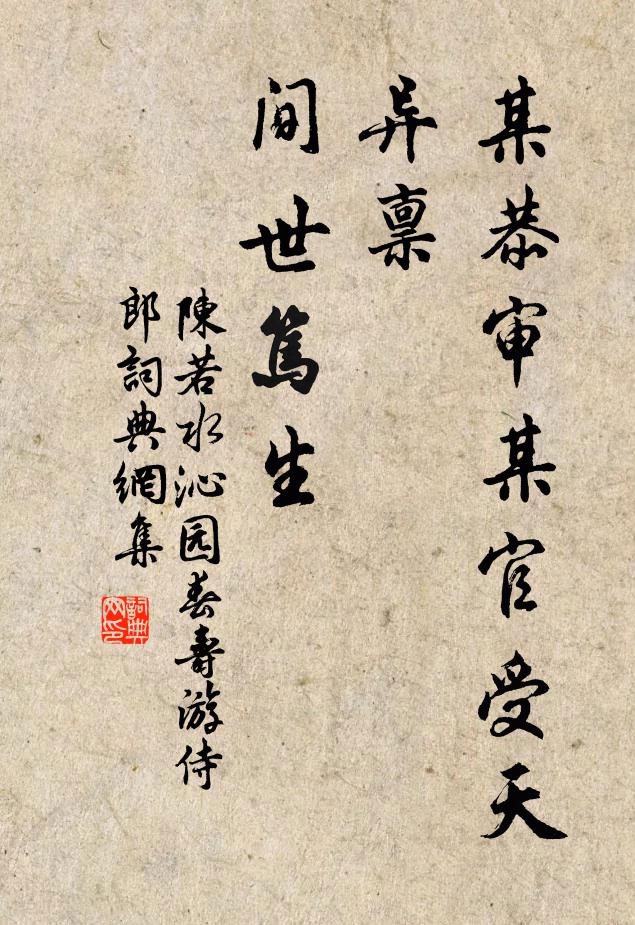 某恭审某官受天
异禀
间世笃生
陳若水沁园春寿游侍
郎詞典網集
詞典
网印